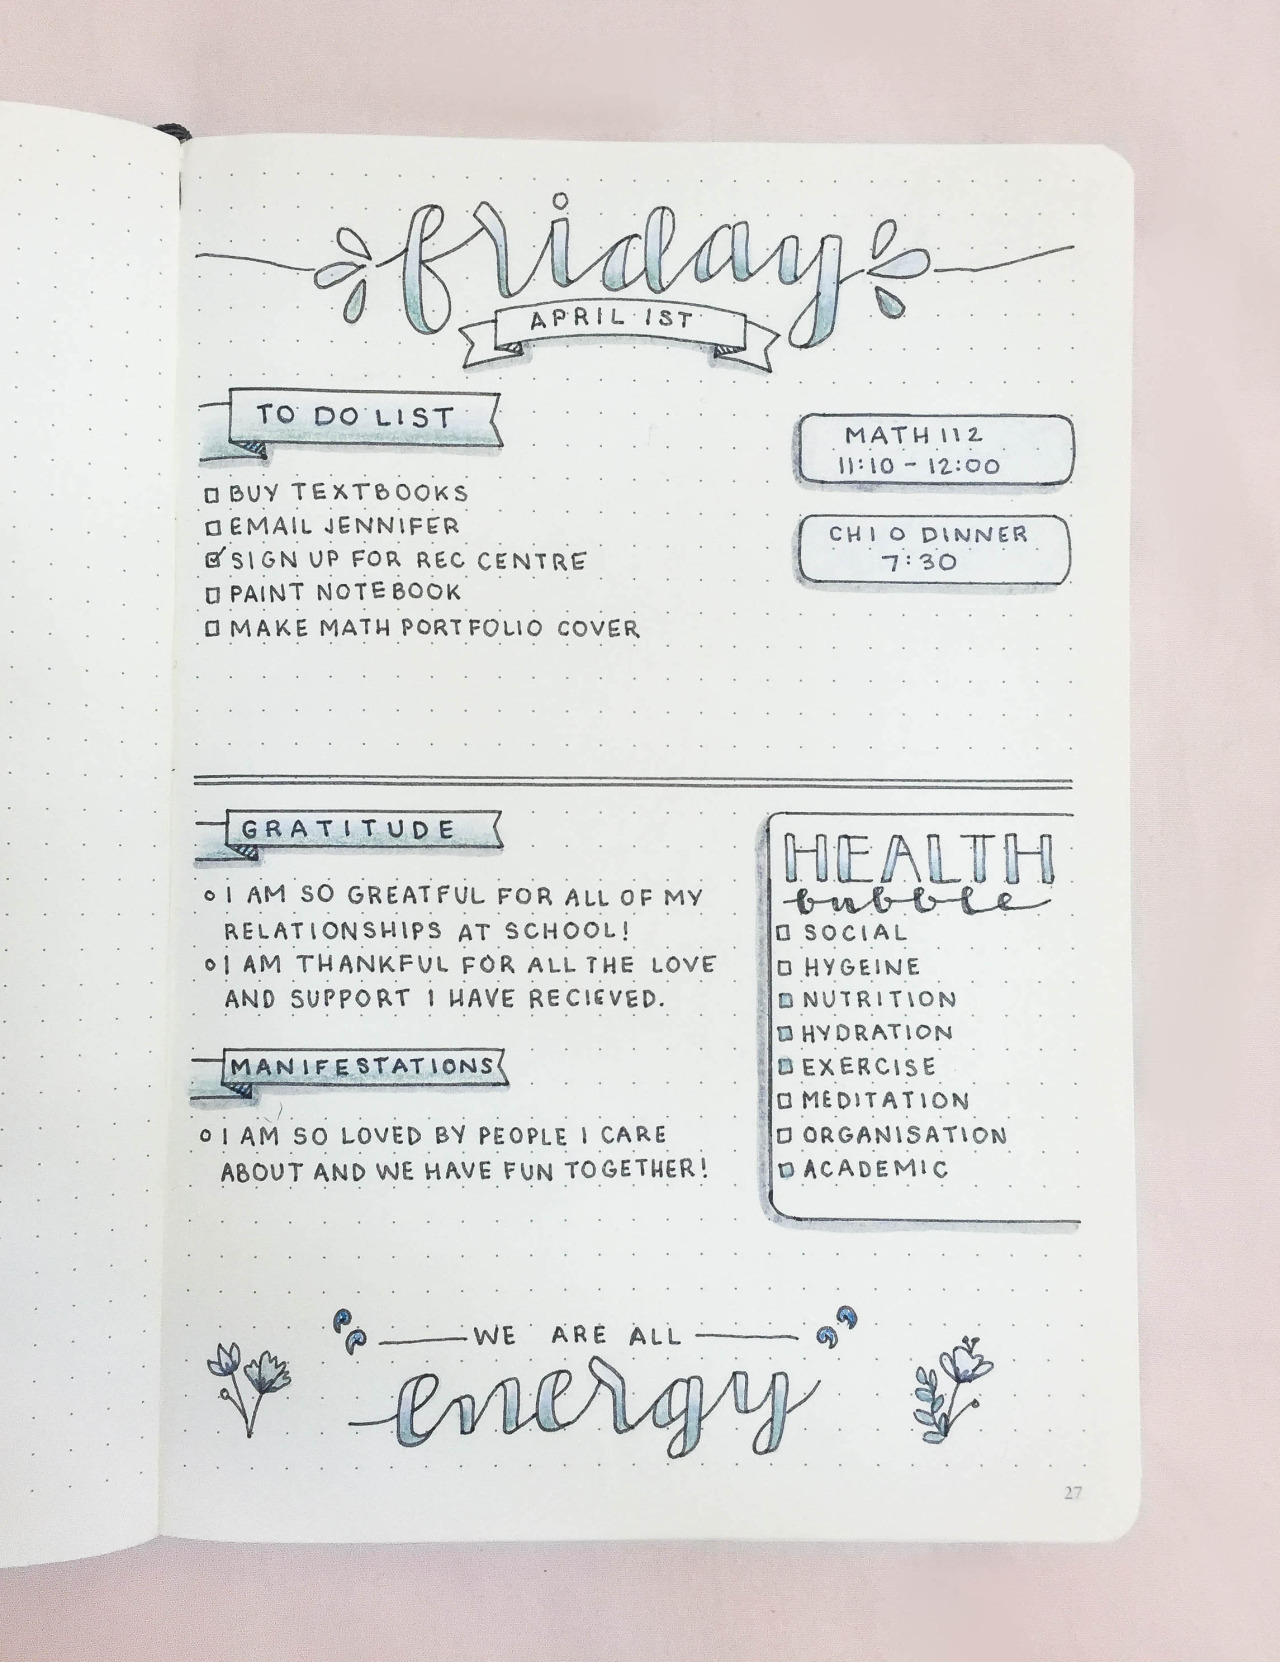 friday
APRIL 1ST
TO DO LIST
BUY TEXTBOOKS
EMAIL JENNIFER
SIGN UP FOR REC CENTRE
PAINT NOTEBOOK
MAKE MATH PORTFOLIO COVER
MATH 112
11:10 - 12:00
CHI O DINNER
7:30
GRATITUDE
I AM SO GREATFUL FOR ALL OF MY
RELATIONSHIPS AT SCHOOL!
I AM THANKFUL FOR ALL THE LOVE
AND SUPPORT I HAVE RECIEVED.
MANIFESTATIONS
I AM SO LOVED BY PEOPLE I CARE
ABOUT AND WE HAVE FUN TOGETHER!
HEALTH
bubble
SOCIAL
HYGEINE
NUTRITION
HYDRATION
EXERCISE
MEDITATION
ORGANISATION
ACADEMIC
WE ARE ALL
energy
27